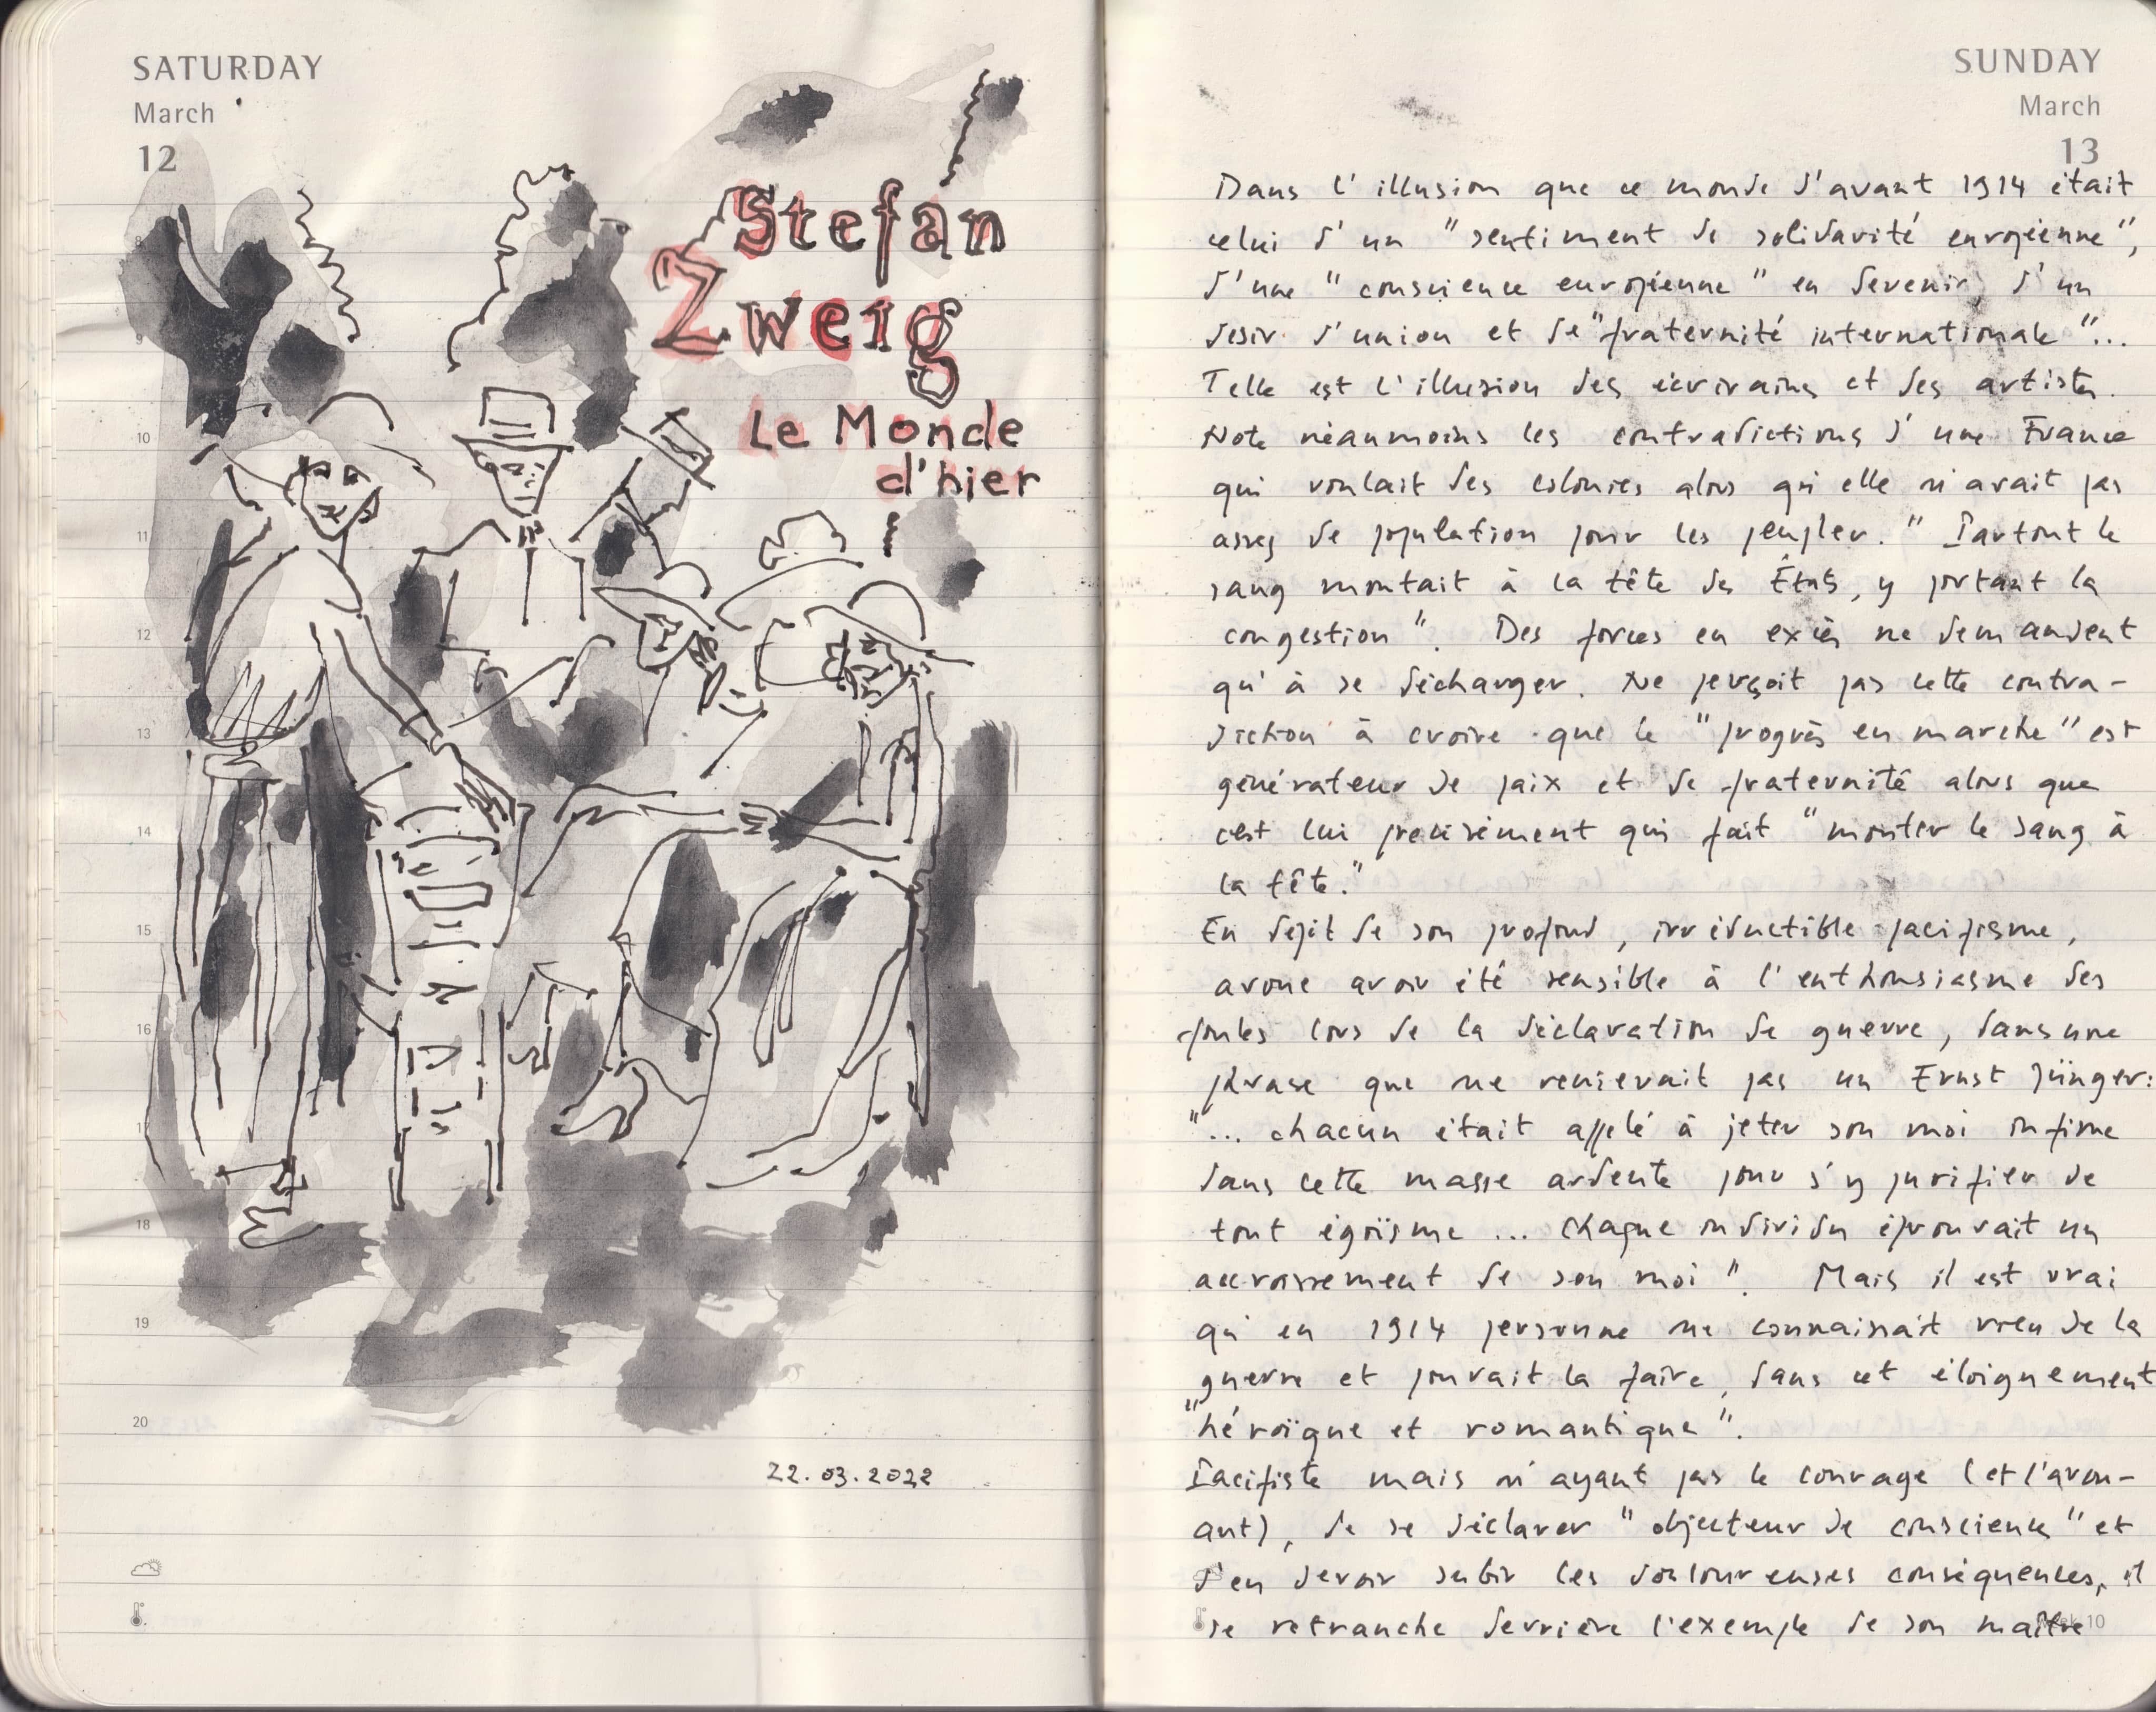 SATURDAY
March
12
Stefan
Zweig
Le Monde
d'hier
8
9
10
11
12
13
14
15
16
17
18
19
20
22.03.2022
SUNDAY
March
13
Dans l'illusion que ce monde d'avant 1914 était
celui d'un "sentiment de solidarité européenne",
d'une "conscience européenne" en devenir, d'un
désir d'union et de "fraternité internationale"...
Telle est l'illusion des écrivains et des artistes.
Note néanmoins les contradictions d'une France
qui voulait des colonies alors qu'elle n'avait pas
assez de population pour les peupler. "Partout le
sang montait à la tête des États, y portant la
congestion". Des forces en excès ne demandent
qu'à se décharger. Ne perçoit pas cette contra-
diction à croire que le "progrès en marche" est
générateur de paix et de fraternité alors que
c'est lui précisément qui fait "monter le sang à
la tête."
En dépit de son profond, irréductible pacifisme,
avoue avoir été sensible à l'enthousiasme des
foules lors de la déclaration de guerre, dans une
phrase que ne renierait pas un Ernst Jünger:
"... chacun était appelé à jeter son moi infime
dans cette masse ardente pour s'y purifier de
tout égoïsme ... Chaque individu éprouvait un
accroissement de son moi". Mais il est vrai
qu'en 1914 personne ne connaissait rien de la
guerre et pouvait la faire, dans cet éloignement
"héroïque et romantique".
Pacifiste mais n'ayant pas le courage (et l'avou-
ant), de se déclarer "objecteur de conscience" et
d'en devoir subir les douloureuses conséquences, il
se retranche derrière l'exemple de son maître
10